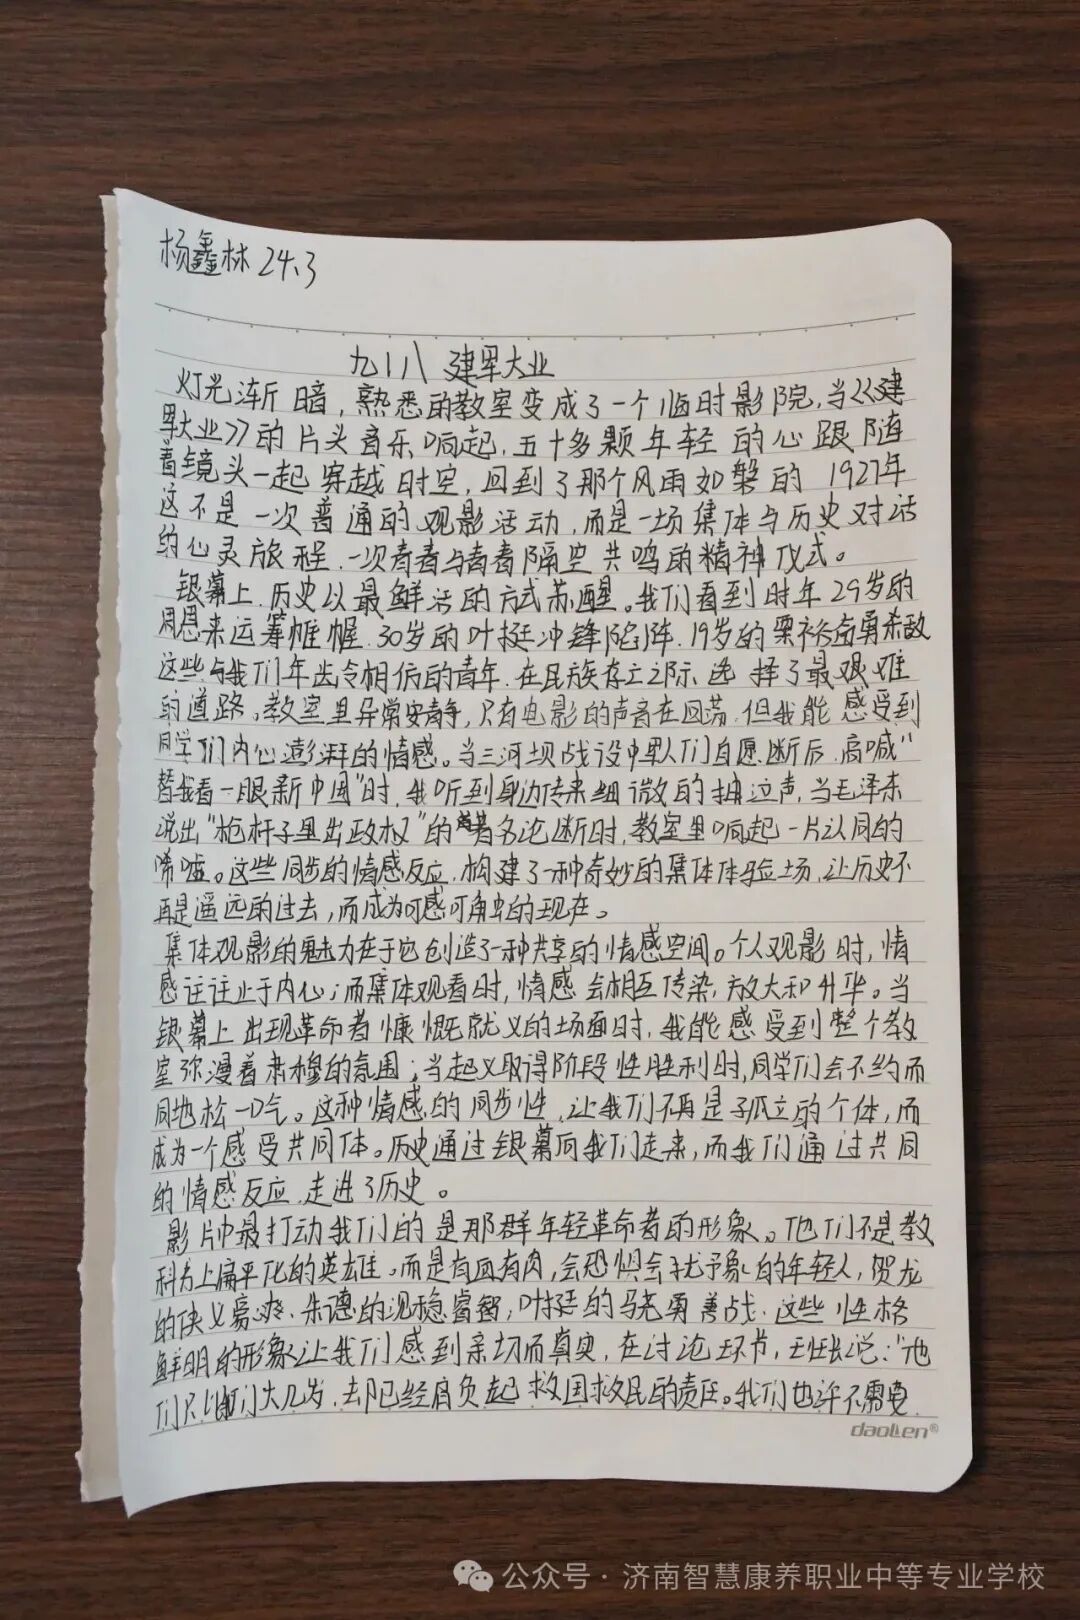 杨鑫林 24.3
九一八 建军大业
灯光渐暗,熟悉的教室变成了一个临时影院,当《建
军大业》的片头音乐响起,五十多颗年轻的心跟随
着镜头一起穿越时空,回到了那个风雨如磐的1927年
这不是一次普通的观影活动,而是一场集体与历史对话
的心灵旅程,一次青春与青春隔空共鸣的精神仪式。
银幕上,历史以最鲜活的方式苏醒。我们看到时年29岁的
周恩来运筹帷幄,30岁的叶挺冲锋陷阵,19岁的粟裕奋勇杀敌
这些与我们年龄相仿的青年,在民族存亡之际,选择了最艰难
的道路,教室里异常安静,只有电影的声音在回荡,但我能感受到
同学们内心澎湃的情感。当三河坝战役中军人们自愿断后,高喊“
替我看一眼新中国”时,我听到身边传来细微的抽泣声,当毛泽东
说出“枪杆子里出政权”的著名论断时,教室里响起一片认同的
唏嘘。这些同步的情感反应,构建了一种奇妙的集体体验场,让历史不
再是遥远的过去,而成为可感可触的现在。
集体观影的魅力在于它创造了一种共享的情感空间。个人观影时,情
感往往止于内心;而集体观看时,情感会相互传染,放大和升华。当
银幕上出现革命者慷慨就义的场面时,我能感受到整个教
室弥漫着肃穆的氛围;当起义取得阶段性胜利时,同学们会不约而
同地松一口气。这种情感的同步性,让我们不再是孤立的个体,而
成为一个感受共同体。历史通过银幕向我们走来,而我们通过共同
的情感反应,走进了历史。
影片中最打动我们的是那群年轻革命者的形象。他们不是教
科书上扁平化的英雄,而是有血有肉,会恐惧会犹豫的年轻人,贺龙
的侠义豪爽,朱德的沉稳睿智,叶挺的骁勇善战,这些性格
鲜明的形象让我们感到亲切而真实,在讨论环节,班长说:“他
们只比我们大几岁,却已经肩负起救国救民的责任。我们也许不需要
daolen®
公众号·济南智慧康养职业中等专业学校